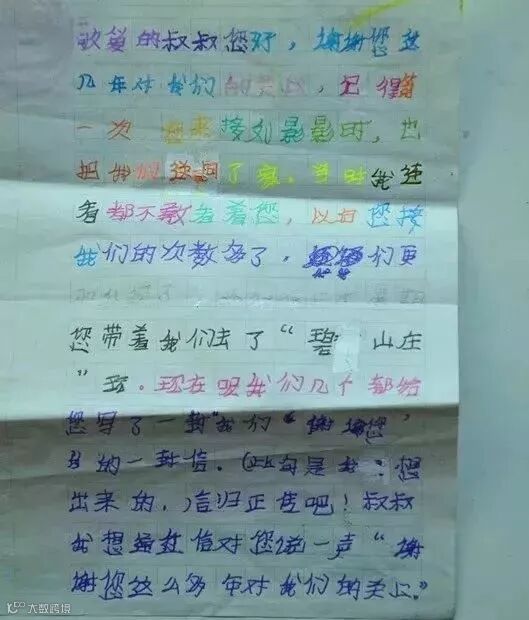 敬爱的叔叔您好，谢谢您这
几年对我们的关心，记得第
一次您来接刘影影时，也
把我们送回了家。当时我连
看都不敢看着您，以后您接
我们的次数多了，们更
您带着我们去了“碧山庄
”玩。现在呢我们几个都给
您写了一封“我们“谢谢您”
的一封信。（此句是我想
出来的，）言归正传吧！叔叔
我想在信对您说一声“谢
谢您这么多年对我们的关心。”
大数跨境